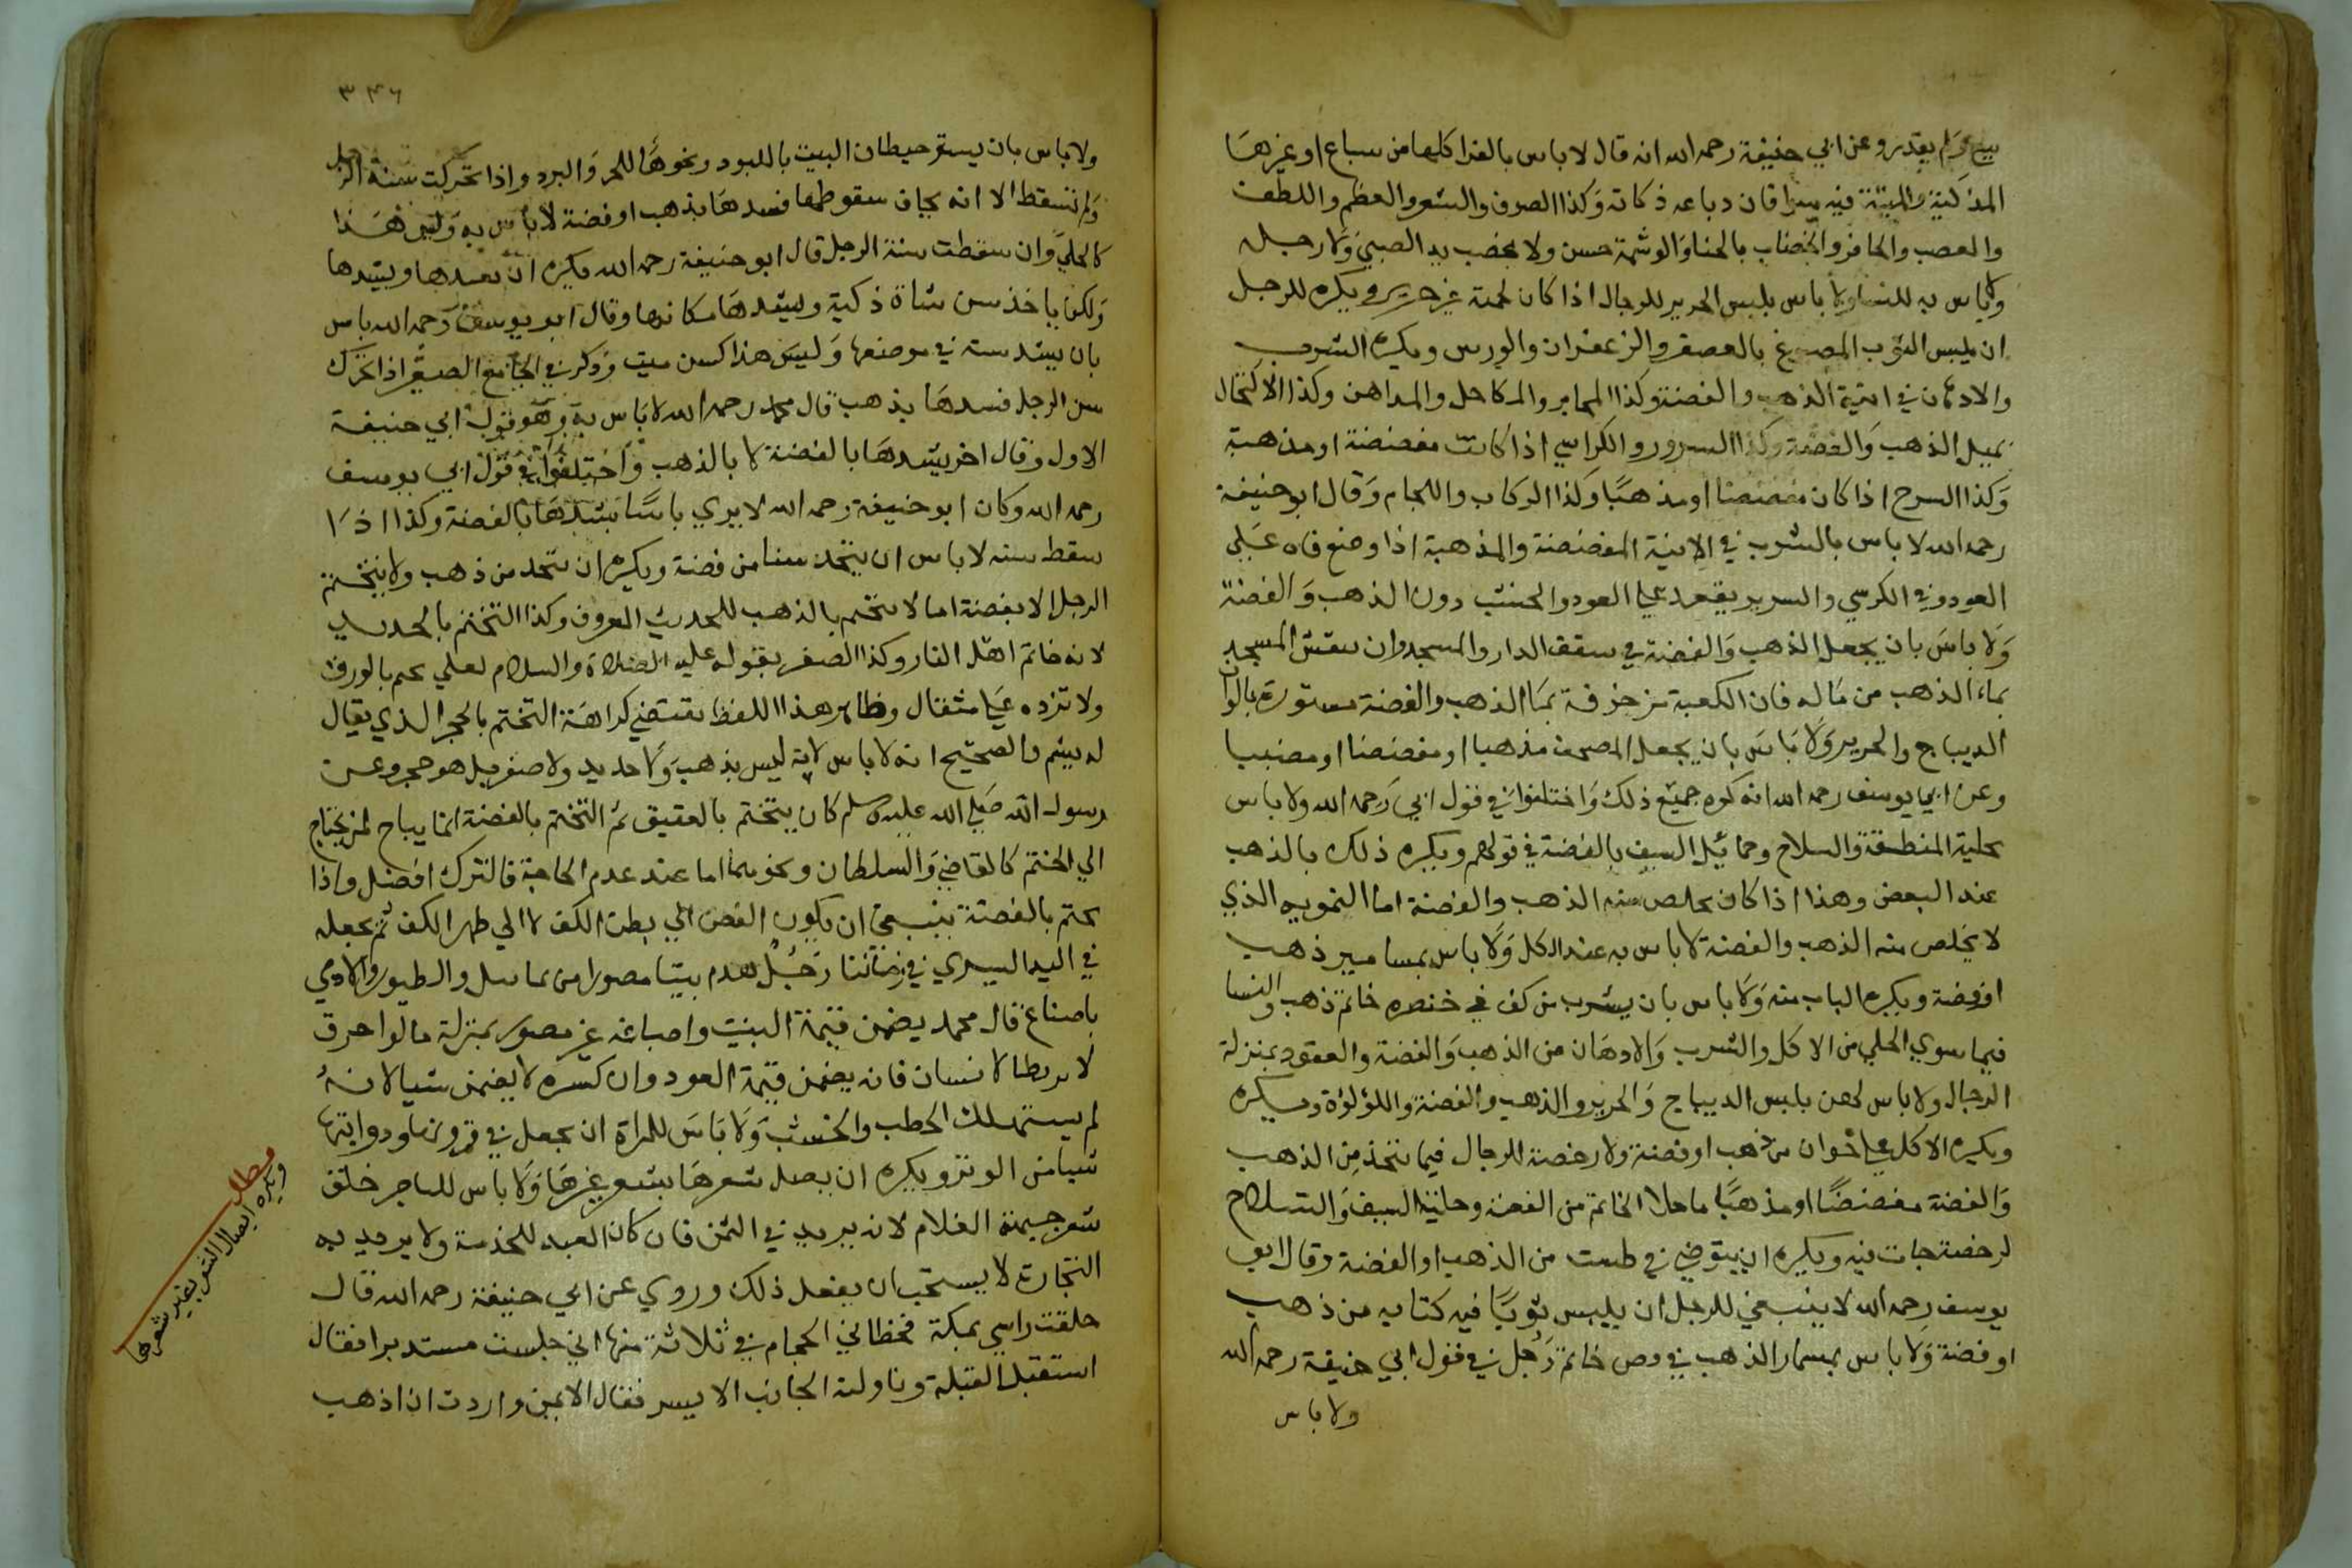 بيع ولم يقدر وعن ابي حنيفة رحمه الله انه قال لا باس بالفرا كلها من سباع او غيرها
المذكية والميتة فيه سوا فان دباغه ذكاته وكذا الصوف والشعر والعظم والظلف
والعصب والحافر والخضاب بالحنا والوشمة حسن ولا يخضب يد الصبي ولا رجله
ولا باس به للنسا ولا باس بلبس الحرير للرجال اذا كان لحمة غير حرير ويكره للرجل
ان يلبس الثوب المصبوغ بالعصفر والزعفران والورس ويكره الشرب
والادهان في انية الذهب والفضة وكذا المجامر والمكاحل والمداهن وكذا الاكتحال
بميل الذهب والفضة وكذا السرور والكراسي اذا كانت مفضضة او مذهبة
وكذا السرج اذا كان مفضضا او مذهبًا وكذا الركاب واللجام وقال ابو حنيفة
رحمه الله لا باس بالشرب في الانية المفضضة والمذهبة اذا وضع فاه على
العود وفي الكرسي والسرير يقعد على العود والخشب دون الذهب والفضة
ولا باس بان يجعل الذهب والفضة في سقف الدار والمسجد وان ينقش المسجد
بماء الذهب من ماله فان الكعبة مزخرفة بما الذهب والفضة مستورة بالوان
الديباج والحرير ولا باس بان يجعل المصحف مذهبا او مفضضا او مضببا
وعن ابي يوسف رحمه الله انه كره جميع ذلك واختلفوا في قول ابي رحمه الله ولا باس
بحلية المنطقة والسلاح وحمائل السيف بالفضة في قولهم ويكره ذلك بالذهب
عند البعض وهذا اذا كان يخلص منه الذهب والفضة اما التمويه الذي
لا يخلص منه الذهب والفضة لا باس به عند الكل ولا باس بمسامير ذهب
او فضة ويكره الباب منه ولا باس بان يشرب من كف في خنصره خاتم ذهب والنسا
فيما سوي الحلي من الاكل والشرب والادهان من الذهب والفضة والعقود بمنزلة
الرجال ولا باس لهن بلبس الديباج والحرير والذهب والفضة واللؤلؤة ويكره
ويكره الاكل على اخوان من ذهب او فضة ولا رخصة للرجال فيما يتخذ من الذهب
والفضة مفضضًا او مذهبًا ما خلا الخاتم من الفضة وحلية السيف والسلاح
لرخصة جات فيه ويكره ان يتوضي في طست من الذهب او الفضة وقال ابو
يوسف رحمه الله لا ينبغي للرجل ان يلبس ثوبًا فيه كتابه من ذهب
او فضة ولا باس بمسمار الذهب في فص خاتم رجل في قول ابي حنيفة رحمه الله
ولا باس
٣٤٦
ولا باس بان يستر حيطان البيت باللبود ونحوها للحر والبرد واذا تحركت سنة الرجل
ولم تسقط الا انه يخاف سقوطها فسدها بذهب او فضة لا باس به وليس هذا
كالحلي وان سقطت سنة الرجل قال ابو حنيفة رحمه الله يكره ان يعيدها ويشدها
ولكن ياخذ سن شاة ذكية ويشدها مكانها وقال ابو يوسف رحمه الله باس
بان يشد سنه في موضعها وليس هذا كسن ميت وذكر في الجامع الصغير اذا تحرك
سن الرجل فسدها بذهب قال محمد رحمه الله لا باس به وهو قول ابي حنيفة
الاول وقال اخر يشدها بالفضة لا بالذهب واختلفوا في قول ابي يوسف
رحمه الله وكان ابو حنيفة رحمه الله لا يري باسًا بشدها بالفضة وكذا اذا
سقط سنه لا باس ان يتخذ سنا من فضة ويكره ان يتخد من ذهب ولا يتختم
الرجل الا بفضة اما لا يتختم بالذهب للحديث المعروف وكذا التختم بالحديد
لانه خاتم اهل النار وكذا الصفر بقوله عليه الصلاة والسلام لعلي تختم بالورق
ولا تزده على مثقال وظاهر هذا اللفظ يقتضي كراهة التختم بالحجر الذي يقال
له يشم والصحيح انه لا باس لانه ليس بذهب ولا حديد ولا صفر بل هو حجر وعن
رسول الله صلي الله عليه وسلم كان يتختم بالعقيق ثم التختم بالفضة انما يباح لمن يحتاج
الي الختم كالقاضي والسلطان ونحوهما اما عند عدم الحاجة فالترك افضل واذا
تختم بالفضة ينبغي ان يكون الفص الي بطن الكف لا الي ظهر الكف ثم يجعله
في اليد اليسري في زماننا رجل هدم بيتا مصورا من تماثيل والطيور والادمي
باصباغ قال محمد يضمن قيمة البيت واصباغه غير مصور بمنزلة ما لو احرق
لا بربطا لانسان فانه يضمن قيمة العود وان كسره لا يضمن شيا لانه
لم يستهلك الحطب والخشب ولا باس للمراة ان يجعل في قرونها ودوايتها
شيا من الوبر ويكره ان يصل شعرها بشعر غيرها ولا باس للتاجر خلق
شعر جبهة الغلام لانه يريد في الثمن فان كان العبد للخدمة ولا يريد به
التجارة لا يستحب ان يفعل ذلك وروي عن ابي حنيفة رحمه الله قال
حلقت راسي بمكة فخطاني الحجام في ثلاثة منها اني جلست مستدبرا فقال
استقبل القبلة وناولته الجانب الايسر فقال الايمن واردت ان اذهب
مطلب
ويكره ايصال الشعر بغير شعرها